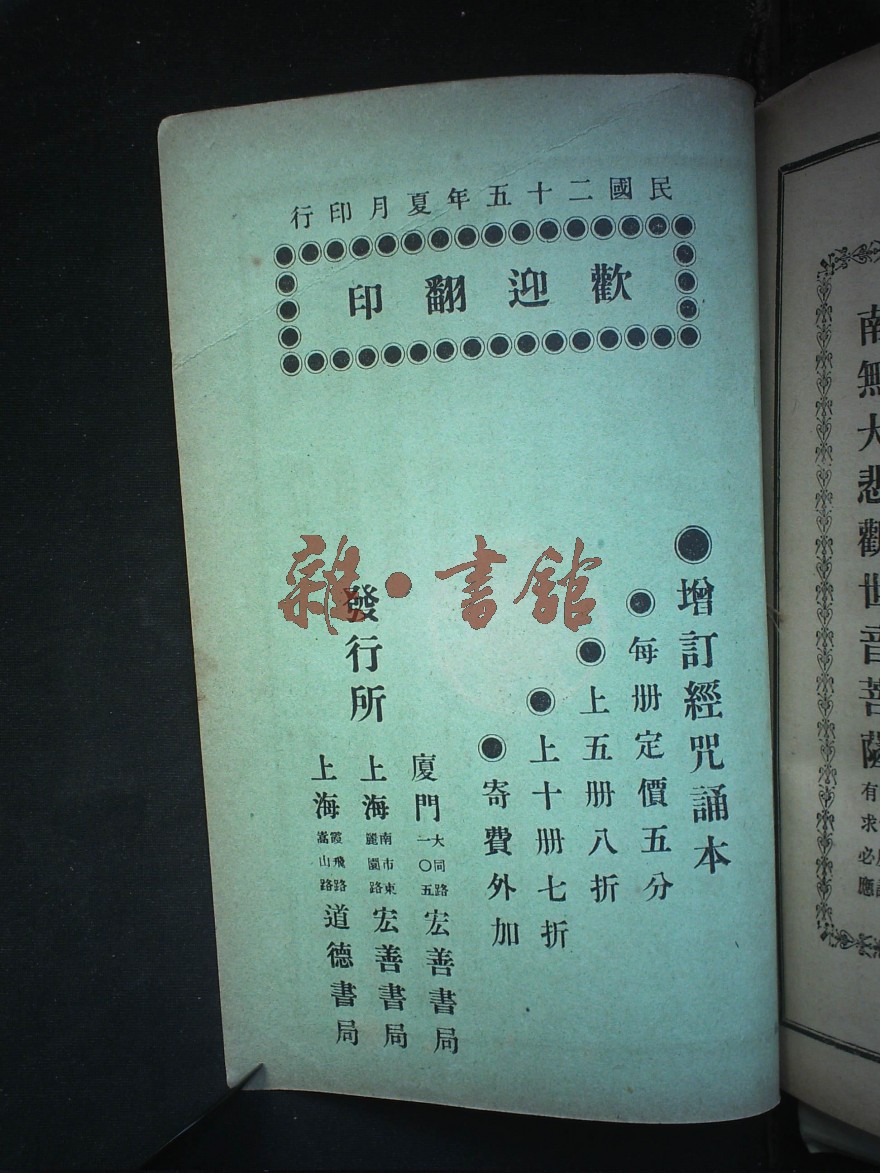 民國二十五年夏月印行
歡迎翻印
增訂經咒誦本
每册定價五分
上五册八折
上十册七折
寄費外加
發行所
廈門大同路一〇五宏善書局
上海南市東麗園路宏善書局
上海霞飛路嵩山路道德書局
雜·書館
南無大悲觀世音菩薩
有求必應